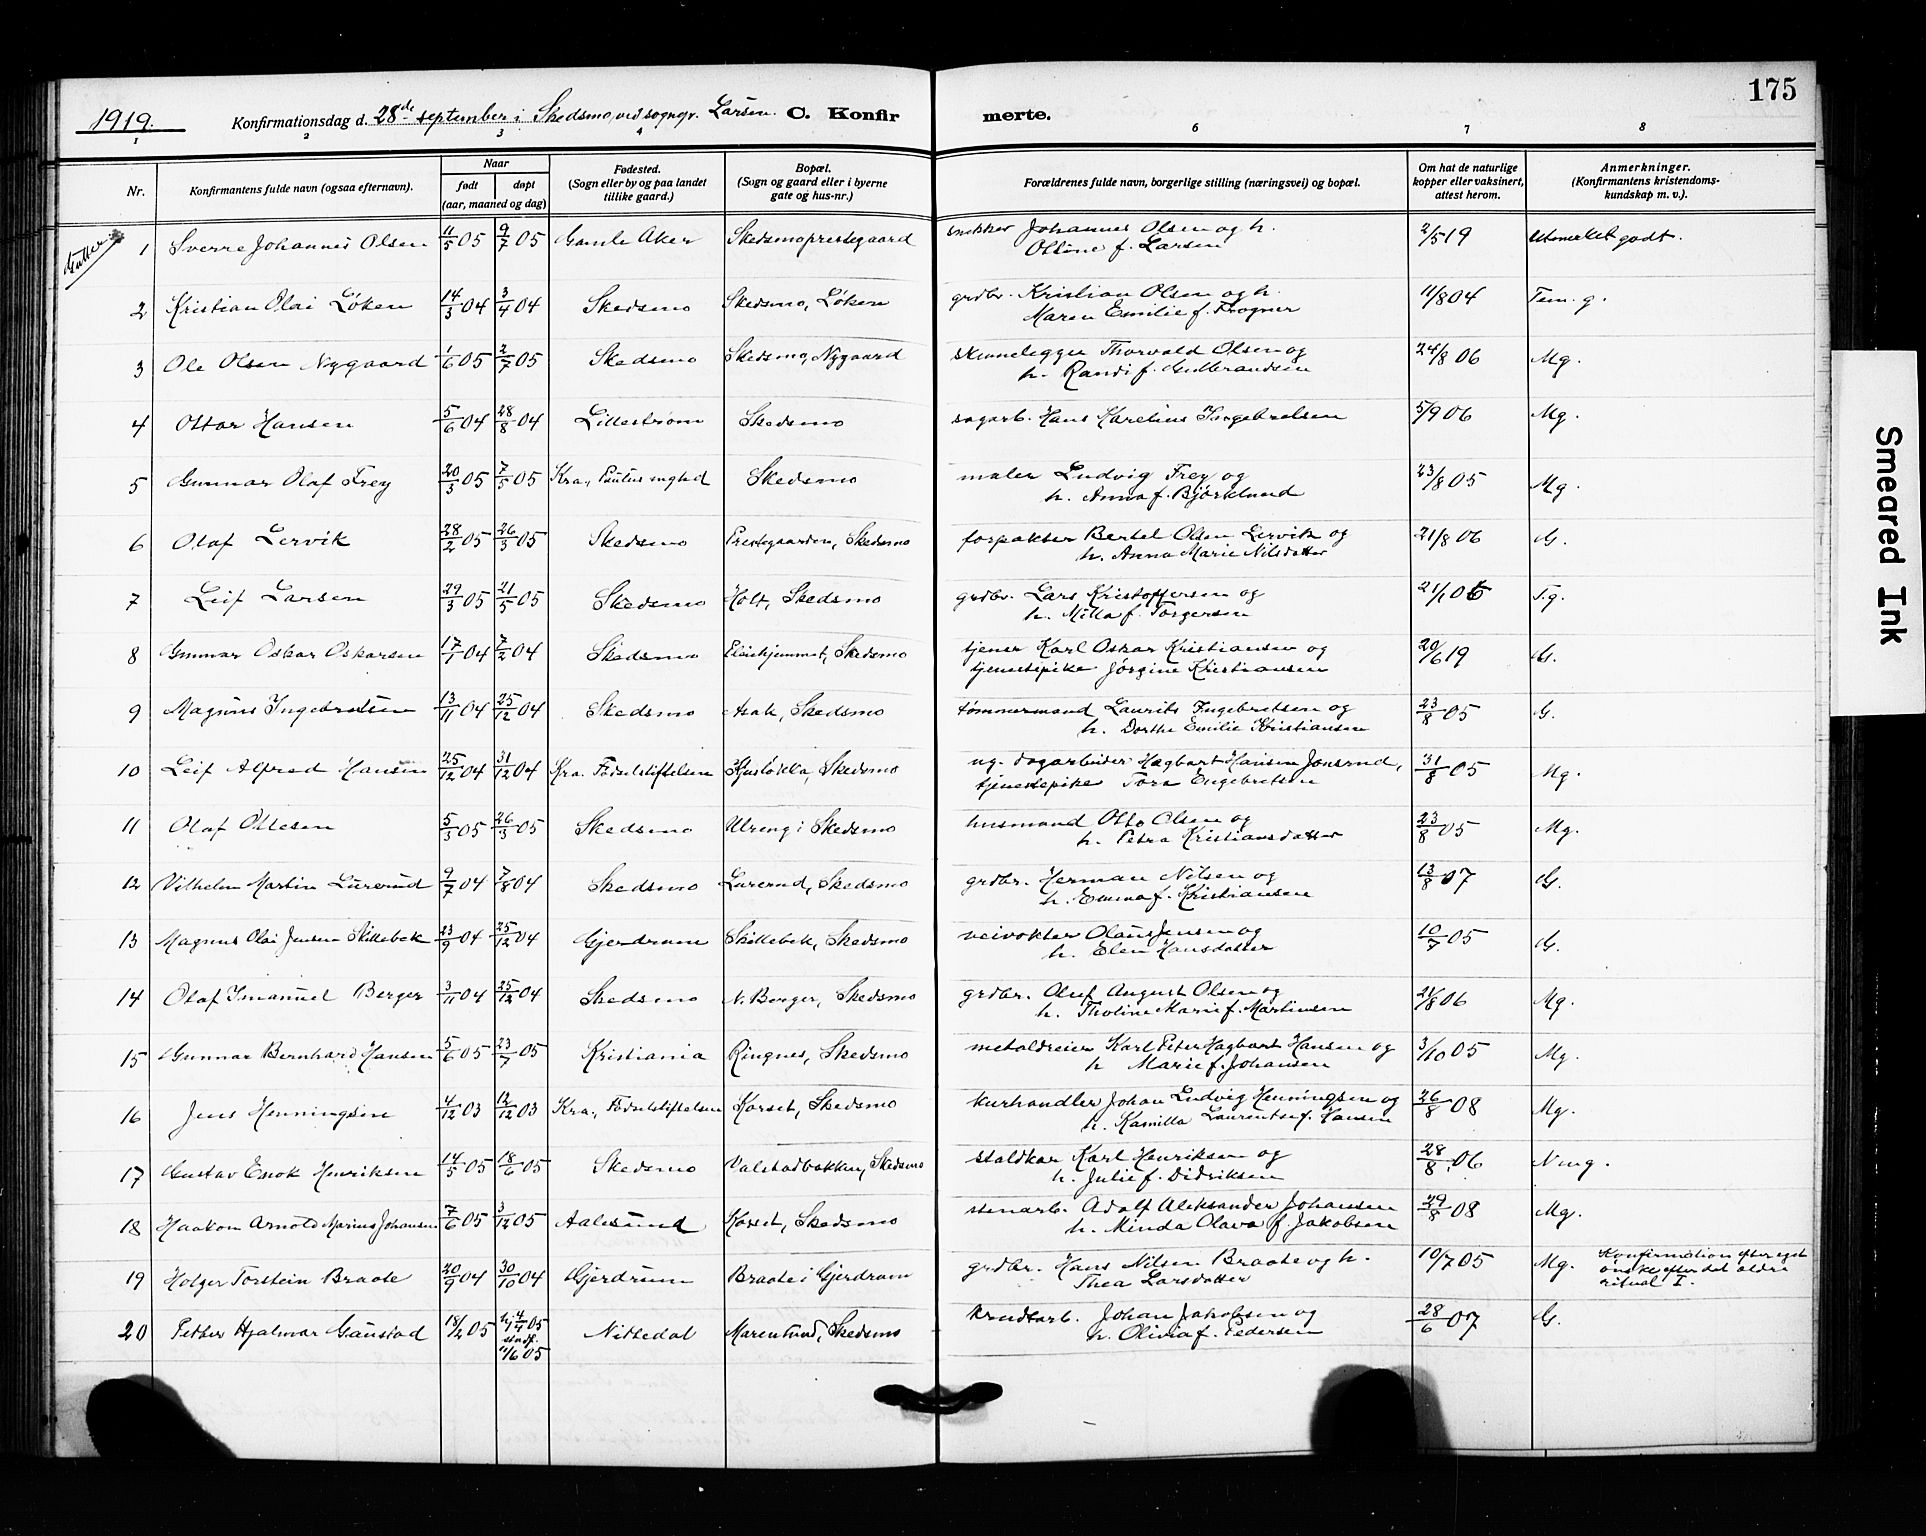 175
1919. Konfirmationsdag d. 28de september i Skedsmo, ved sogngr. Larsen. C. Konfir merte.
1 2 3 4 6 7 8
Nr. | Konfirmantens fulde navn (ogsaa efternavn). | Naar født døpt (aar, maaned og dag) | Fødested. (Sogn eller by og paa landet tillike gaard.) | Bopæl. (Sogn og gaard eller i byerne gate og hus-nr.) | Forældrenes fulde navn, borgerlige stilling (næringsvei) og bopæl. | Om hat de naturlige kopper eller vaksinert, attest herom. | Anmerkninger. (Konfirmantens kristendoms-kundskap m. v.).
Gutter:
1 Sverre Johannes Olsen 11/5 05 9/7 05 Gamle Aker Skedsmoprestegaard snekker Johannes Olsen og h. 2/5 19 Utmerket godt.
Olsine f. Larsen
2 Kristian Olai Løken 14/3 04 3/4 04 Skedsmo Skedsmo, Løken grdbr. Kristian Olsen og h. 11/8 04 Tem. g.
Maren Emilie f. Frogner
3 Ole Olsen Nygaard 1/6 05 2/7 05 Skedsmo Skedsmo, Nygaard skinnelegger Thorvald Olsen og 24/8 06 Mg.
h. Randi f. Gulbrandsen
4 Ottar Hansen 5/6 04 28/8 04 Lillestrøm Skedsmo sagarb. Hans Karelius Ingebretsen 5/9 06 Mg.
5 Gunnar Olaf Frey 20/3 05 7/5 05 Kra., Paulus mghed Skedsmo maler Ludvig Frey og 23/8 05 Mg.
h. Anna f. Bjørklund
6 Olaf Lervik 28/2 05 26/3 05 Skedsmo Prestegaarden, Skedsmo forpakter Bertel Olsen Lervik og 21/8 06 G.
h. Anna Marie Nilsdatter
7 Leif Larsen 29/3 05 21/5 05 Skedsmo Holt, Skedsmo grdbr. Lars Kristoffersen og 21/1 06 T.g.
h. Milla f. Torgersen
8 Gunnar Oskar Oskarsen 17/1 04 7/2 04 Skedsmo Eliashjemmet, Skedsmo tjener Karl Oskar Kristiansen og 20/6 19 G.
tjenestepike Jørgine Kristiansen
9 Magnus Ingebretsen 13/11 04 25/12 04 Skedsmo Asak, Skedsmo tømmermand Laurits Ingebretsen og 23/8 05 G.
h. Dorthe Emilie Kristiansen
10 Leif Alfred Hansen 25/12 04 31/12 04 Kra. Fødselstiftelsen Husløkka, Skedsmo ug. dagarbeider Hagbart Hansen Jonsrud, 31/8 05 Mg.
tjenestepike Tora Engebretsen
11 Olaf Ottesen 5/3 05 26/3 05 Skedsmo Ulreng i Skedsmo husmand Otto Olsen og 23/8 05 Mg.
h. Petra Kristiansdatter
12 Vilhelm Martin Lurerud 9/7 04 7/8 04 Skedsmo Lurerud, Skedsmo grdbr. Herman Nilsen og 13/8 07 G.
h. Emma f. Kristiansen
13 Magnus Olai Jensen Skillebek 23/9 04 25/12 04 Gjerdrum Skillebek, Skedsmo veivokter Olaus Jensen og 10/7 05 G.
h. Elen Hansdatter
14 Olaf Imanuel Berger 3/11 04 25/12 04 Skedsmo N. Berger, Skedsmo grdbr. Oluf August Olsen og 21/8 06 Mg.
h. Tholine Marie f. Martinsen
15 Gunnar Bernhard Hansen 5/6 05 23/7 05 Kristiania Ringnes, Skedsmo metaldreier Karl Peter Hagbart Hansen og 3/10 05 Mg.
h Marie f. Johansen
16 Jens Henningsen 4/12 03 12/12 03 Kra., Fødselstiftelsen Korset, Skedsmo kurhandler Johan Ludvig Henningsen og 26/8 08 Mg.
h. Kamilla Laurentse f. Hansen
17 Gustav Enok Henriksen 14/5 05 18/6 05 Skedsmo Valstadbakken, Skedsmo staldkar Karl Henriksen og 28/8 06 Nmg.
h. Julie f. Didriksen
18 Haakon Arnold Marius Johansen 7/6 05 3/12 05 Aalesund Korset, Skedsmo stenarb. Adolf Aleksander Johansen 29/8 08 Mg.
h. Minda Olava f. Jakobsen
19 Holger Torstein Braate 20/9 04 30/10 04 Gjerdrum Braate i Gjerdrum grdbr. Hans Nilsen Braate og h. 10/7 05 Mg. Konfirmation efter eget
Thea Larsdatter ønske efter det ældre
ritual I.
20 Petter Hjalmar Gaustad 18/2 05 hj 4/4 05 Nittedal Marenlund, Skedsmo krudtarb. Johan Jakobsen og 28/6 07 G.
stadf. h. Olivia f. Pedersen
11/6 05
Smeared Ink